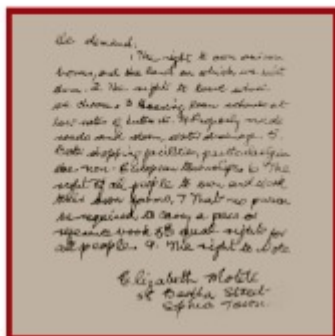 We demand:
1. The right to own our own
homes, and the land on which we built
them. 2. The right to live where
we choose. 3. Housing loan schemes at
low rates of interest. 4. Properly made
roads and storm water drainage. 5.
Better shopping facilities, particularly in
the non-European townships. 6. The
right of all people to own and work
their own farms. 7. That no person
be required to carry a pass or
reference book. 8. Equal rights for
all people. 9. The right to vote
Elizabeth
38 Bertha Street
Sophia Town.